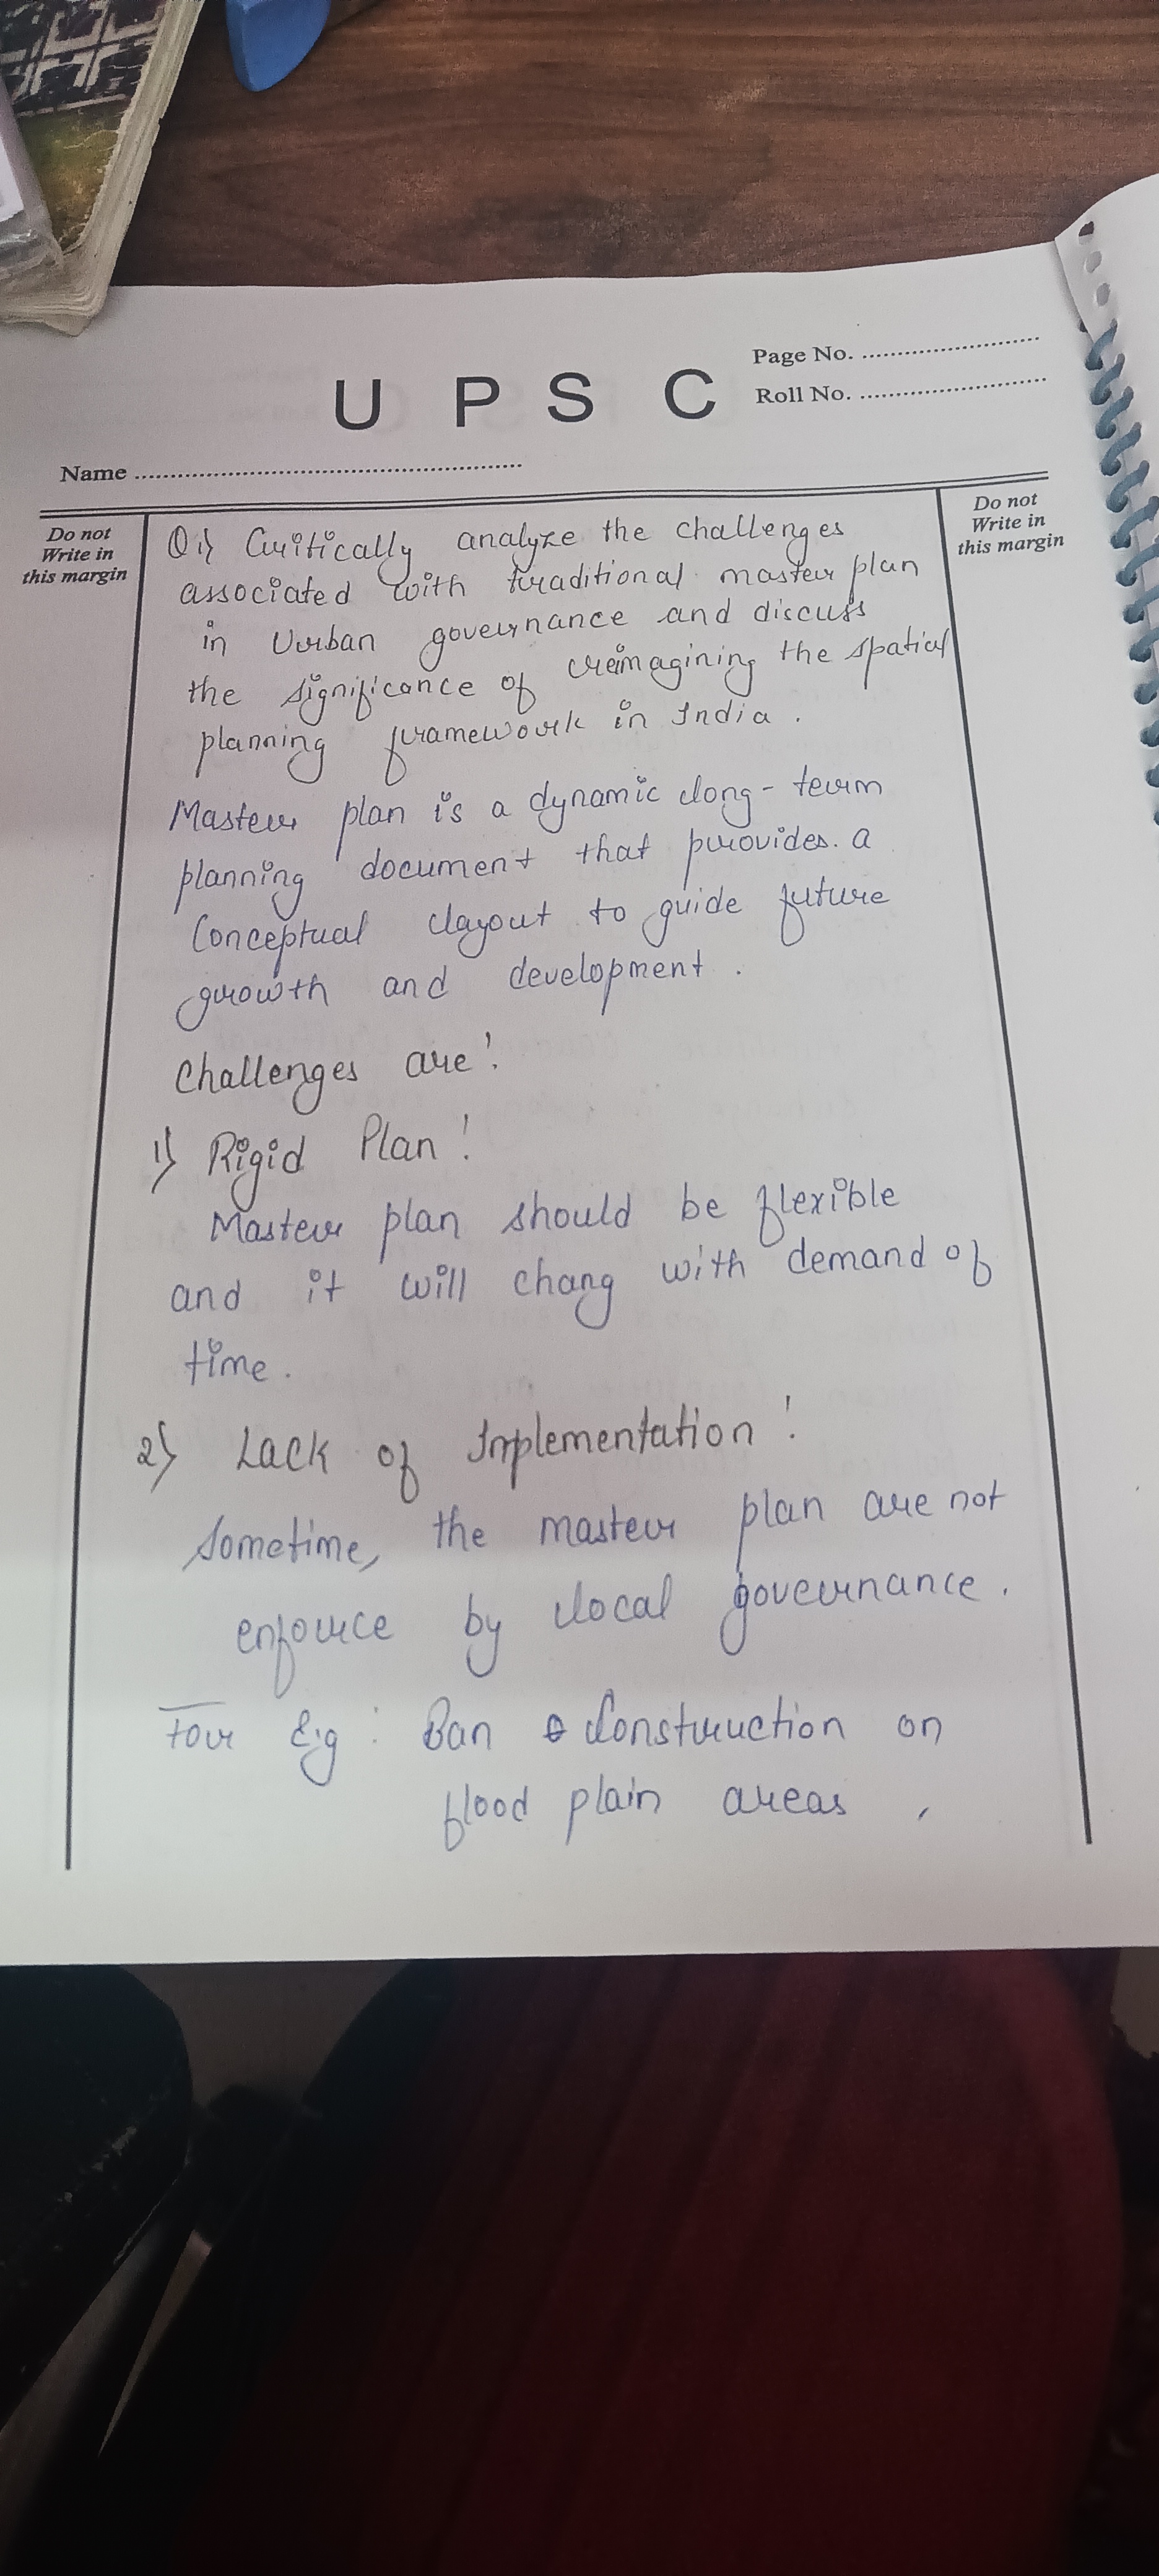 Page No.
U P S C
Roll No.
Name
Do not
Write in
this margin
Do not
Write in
this margin
Q1) Critically analyze the challenges
associated with traditional master plan
in Urban governance and discuss
the significance of reimagining the spatial
planning framework in India.
Master plan is a dynamic long-term
planning document that provides. a
Conceptual layout to guide future
growth and development.
Challenges are:
1) Rigid Plan:
Master plan should be flexible
and it will chang with demand of
time.
2) Lack of Implementation:
Sometime, the master plan are not
enforce by local governance.
For E.g: Ban Construction on
flood plain areas,